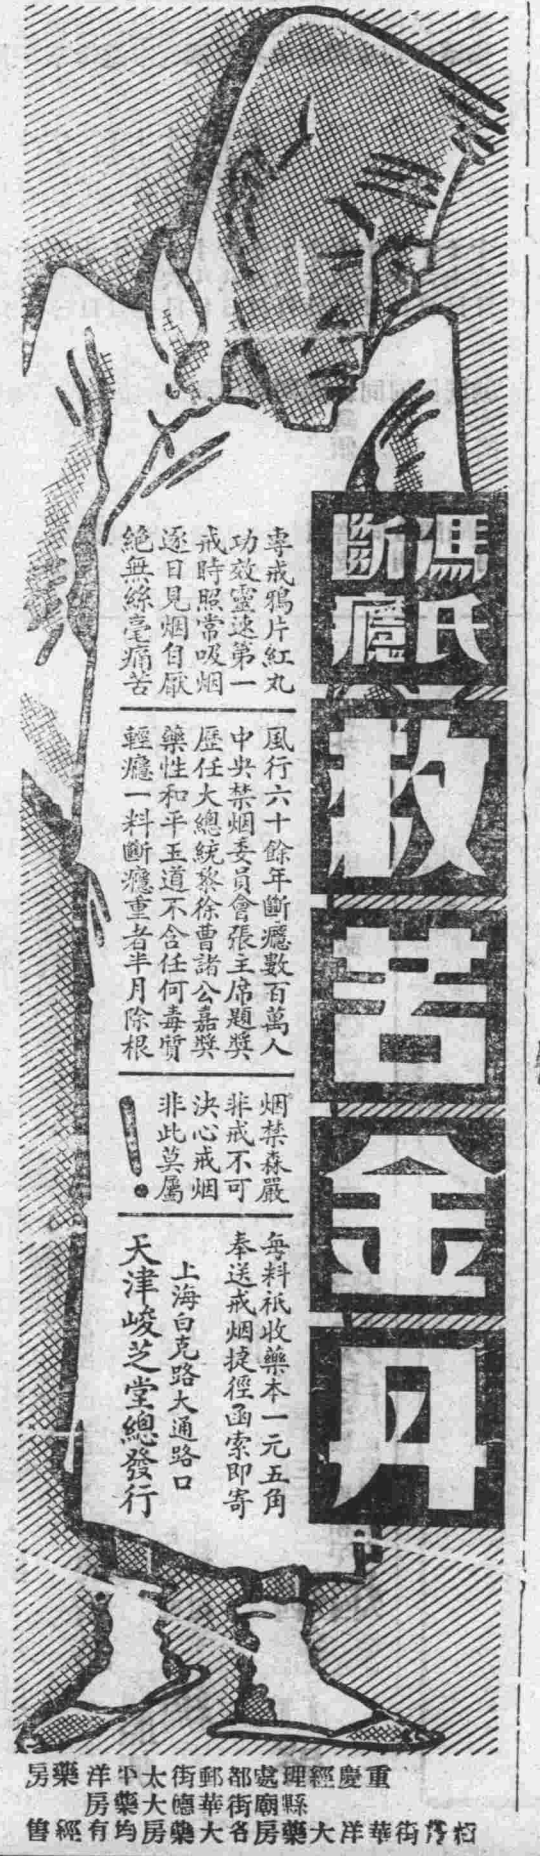 馮氏
斷癮
救苦金丹
專戒鴉片紅丸
功效靈速第一
戒時照常吸烟
逐日見烟自厭
絕無絲毫痛苦
風行六十餘年斷癮數百萬人
中央禁烟委員會張主席題獎
歷任大總統黎徐曹諸公嘉獎
藥性和平王道不含任何毒質
輕癮一料斷癮重者半月除根
烟禁森嚴
非戒不可
決心戒烟
非此莫屬
!
每料祇收藥本一元五角
奉送戒烟捷徑函索即寄
上海白克路大通路口
天津峻芝堂總發行
重慶經理處都郵街太平洋藥房
縣廟街華德大藥房
街華洋大藥房各大藥房均有經售